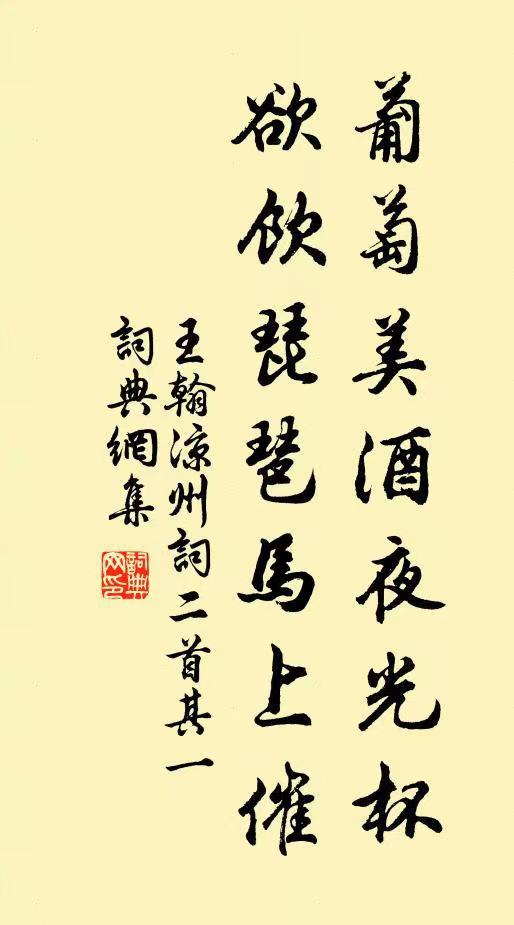 葡萄美酒夜光杯
欲飲琵琶馬上催
王翰涼州詞二首其一
詞典網集
詞典網印